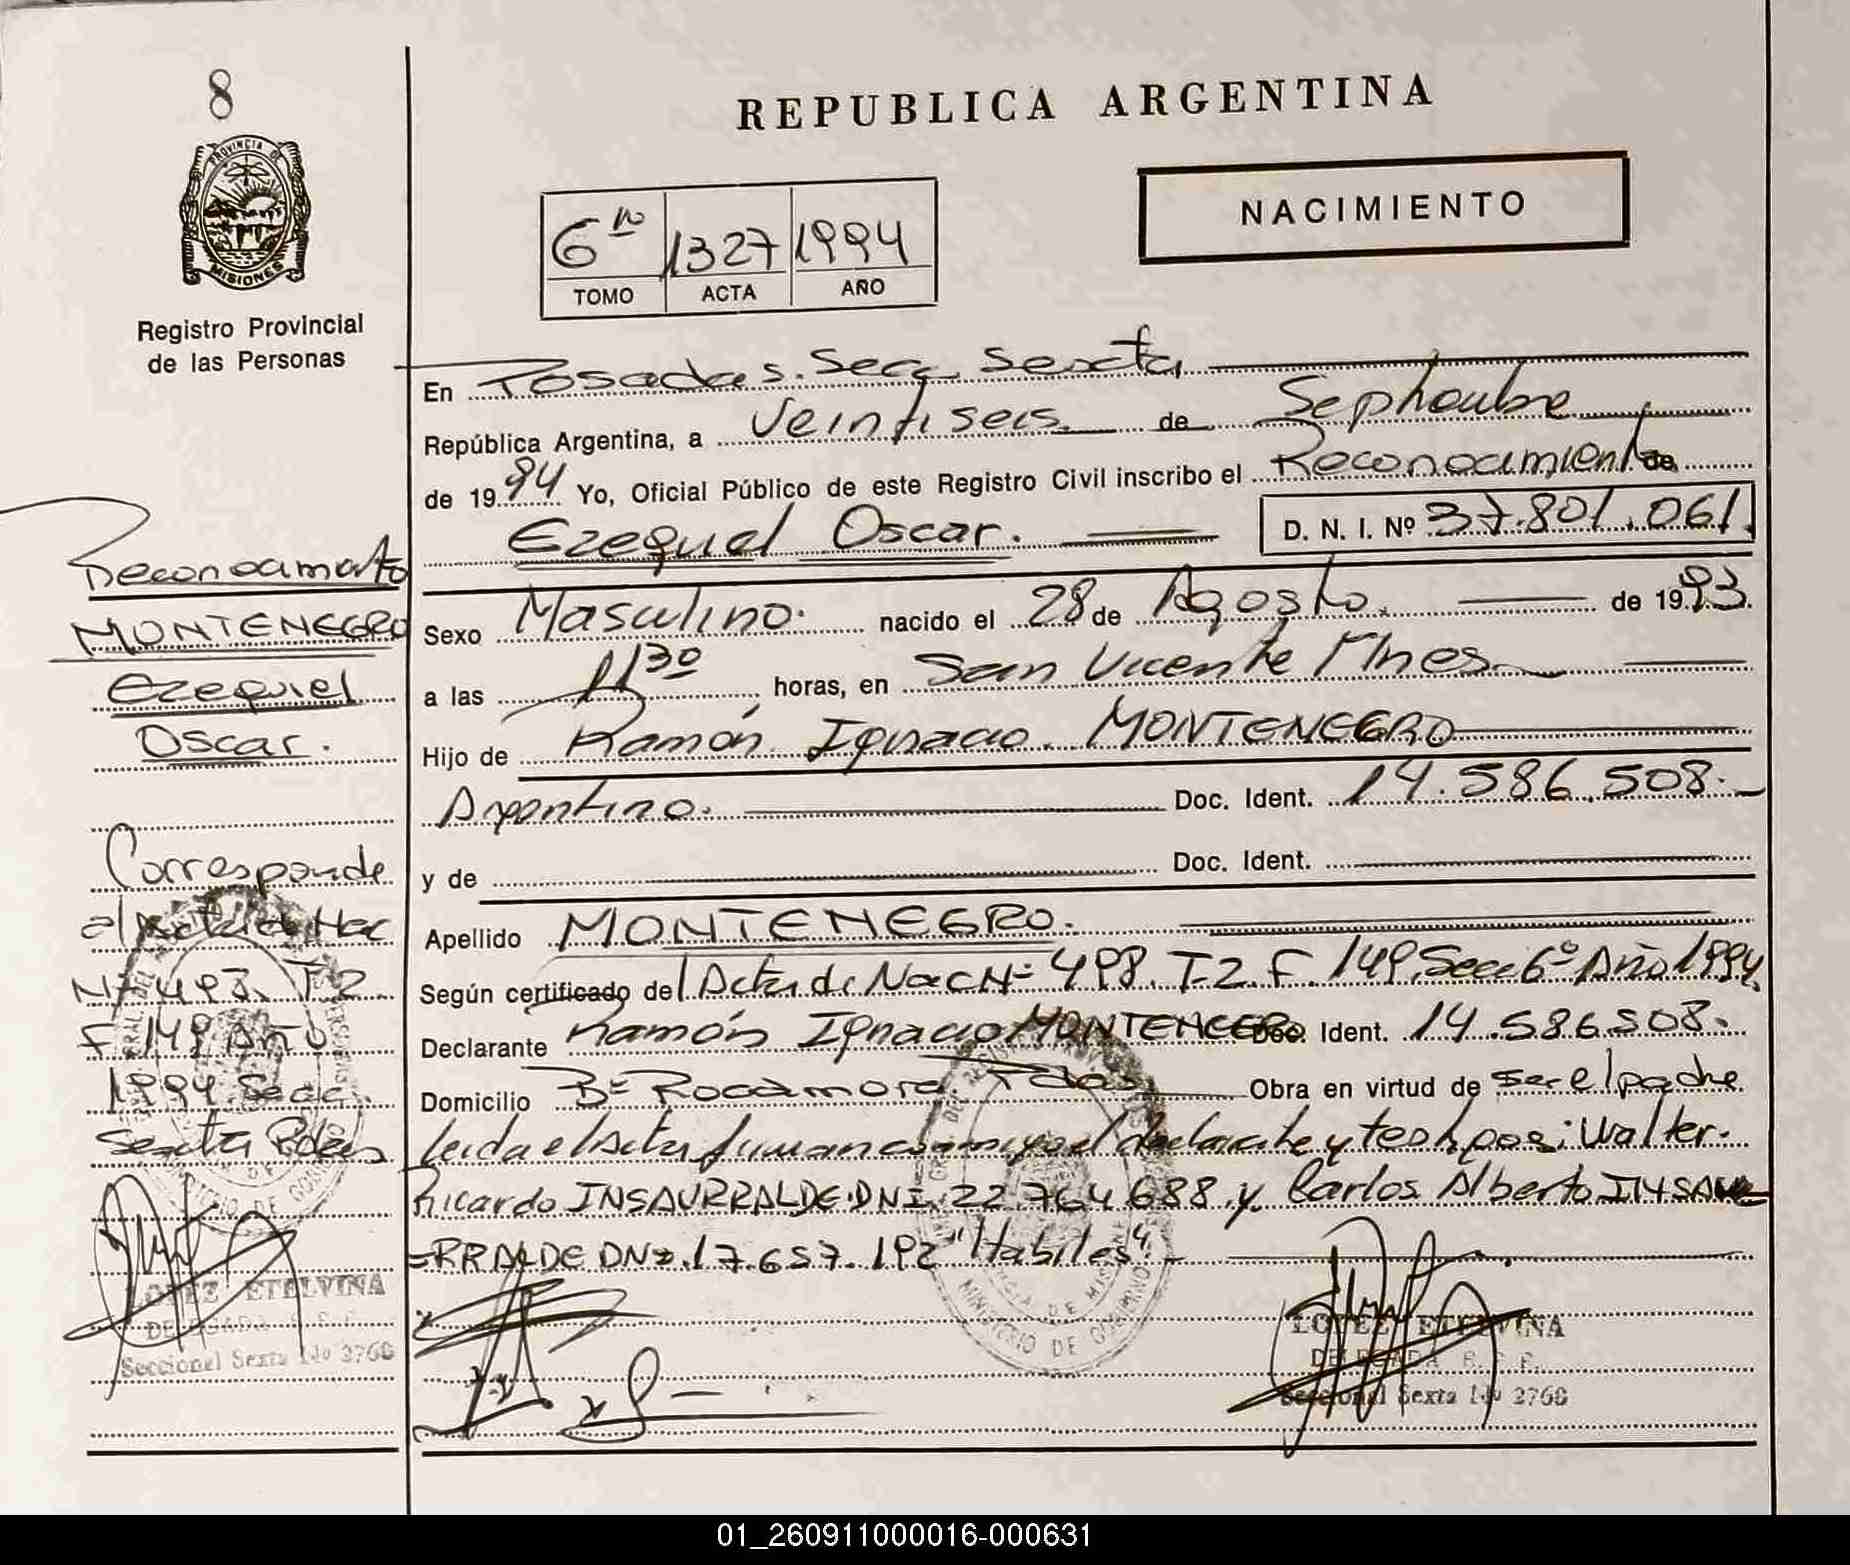 8
REPUBLICA ARGENTINA
PROVINCIA DE
MISIONES
NACIMIENTO
6to 1327 1994
TOMO ACTA AÑO
Registro Provincial
de las Personas
En Posadas. Secc. Sexta
República Argentina, a Veintiseis de Septiembre
de 1994 Yo, Oficial Público de este Registro Civil inscribo el Reconocimiento de
Ezequiel Oscar. D. N. I. Nº 37.801.061.
Sexo Masculino. nacido el 28 de Agosto. de 1993.
a las 11 30 horas, en San Vicente Mnes.
Hijo de Ramón Ignacio MONTENEGRO
Argentino. Doc. Ident. 14.586.508.
y de Doc. Ident.
Apellido MONTENEGRO.
Según certificado del Acta de Nac Nº 498. T-2. F. 149. Secc 6º Año 1994.
Declarante Ramón Ignacio MONTENEGRO Doc. Ident. 14.586.508.
Domicilio Bº Rocamora Pdas. Obra en virtud de ser el padre
leida el Acta firman conmigo el declarante y testigos: Walter.
Ricardo INSAURRALDE. DNI. 22.764.688. y Carlos Alberto INSAU
=RRALDE DNI. 17.657.192 "Habiles".
Reconocimiento
MONTENEGRO
Ezequiel
Oscar.
Corresponde
al Acta de Nac
Nº 498. T-2.
F. 149 Año
1994. Secc.
Sexta Pdas
LOPEZ ETELVINA
DELEGADA R.C.P.
Seccional Sexta
MINISTERIO DE GOBIERNO
LOPEZ ETELVINA
DELEGADA R.C.P.
Seccional Sexta
01_260911000016-000631